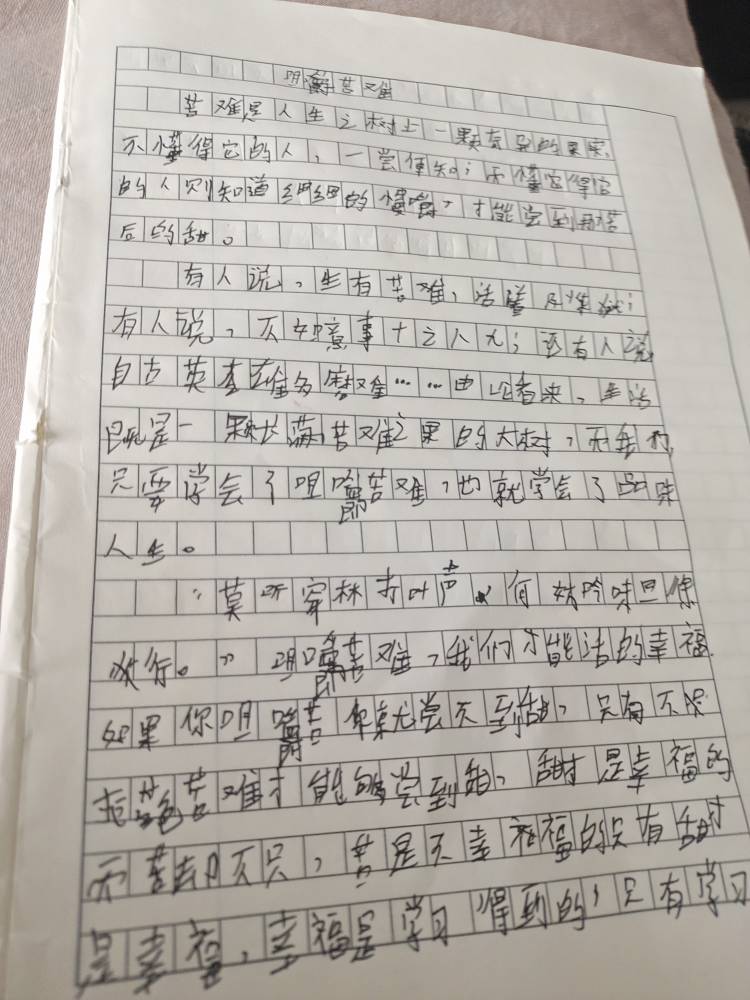 咀嚼苦难
苦难是人生之树上一颗的果实,
不懂得它的人,一尝便知;而懂它得它
的人则知道细细的慢嚼,才能尝到那苦
后的甜。
有人说,生有苦难,活
有人说,不如意事十之八九;还有人说
自古英雄多磨难……由此看来,生活
既是一颗长满苦难之果的大树,而我们
只要学会了咀嚼苦难,也就学会了品味
人生。
“莫听穿林打叶声,何妨吟啸且徐
行。”咀嚼苦难,我们才能活的幸福
如果你咀嚼苦你就尝不到甜,只有不
苦难才能够尝到甜,甜是幸福的
而苦却不只,苦是不幸福的只有甜
是幸福,幸福是学习得到的,只有学习